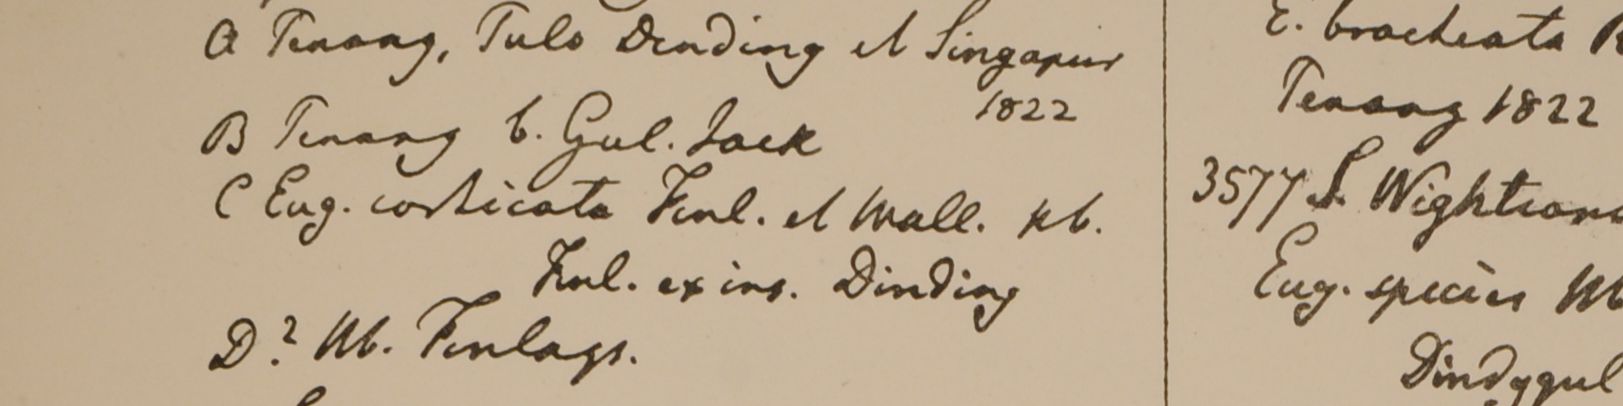 A Penang, Pulo Dinding et Singapur
1822
B Penang b. Gul. Jack
C Eug. corticata Finl. et Wall. Hb.
Finl. ex ins. Dinding
D? Hb. Finlays.
E. bracteata R
Penang 1822
3577 S. Wightiana
Eug. species Hb
Dindygul